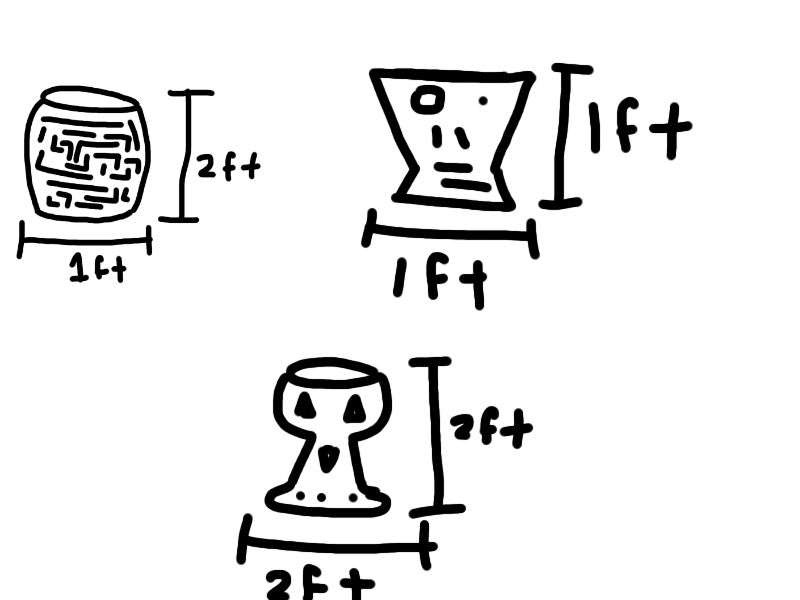 2ft
1ft
1ft
1ft
2ft
2ft